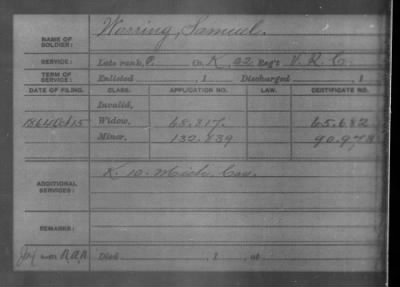 NAME OF SOLDIER: Warring, Samuel.
SERVICE: Late rank, P. Co. K 22 Reg't V. R. C.
TERM OF SERVICE: Enlisted , 1 Discharged , 1
DATE OF FILING. CLASS. APPLICATION NO. LAW. CERTIFICATE NO.
Invalid,
1864 Oct 15 Widow, 68.817. 65.682
Minor, 132.839 90.978
ADDITIONAL SERVICES: K. 10. Mich. Cav.
REMARKS:
Died , 1 , at